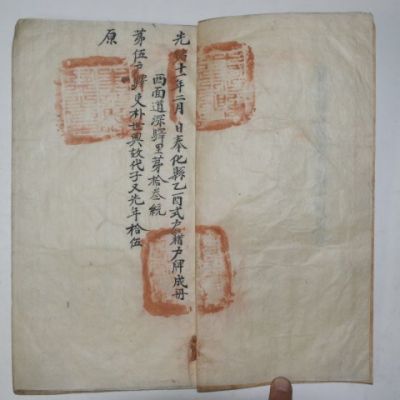 光緖十一年二月 日奉化縣乙酉式戶籍戶牌成册
西面道深驛里第拾叁統
第伍戶驛吏朴世典故代子又先年拾伍
原